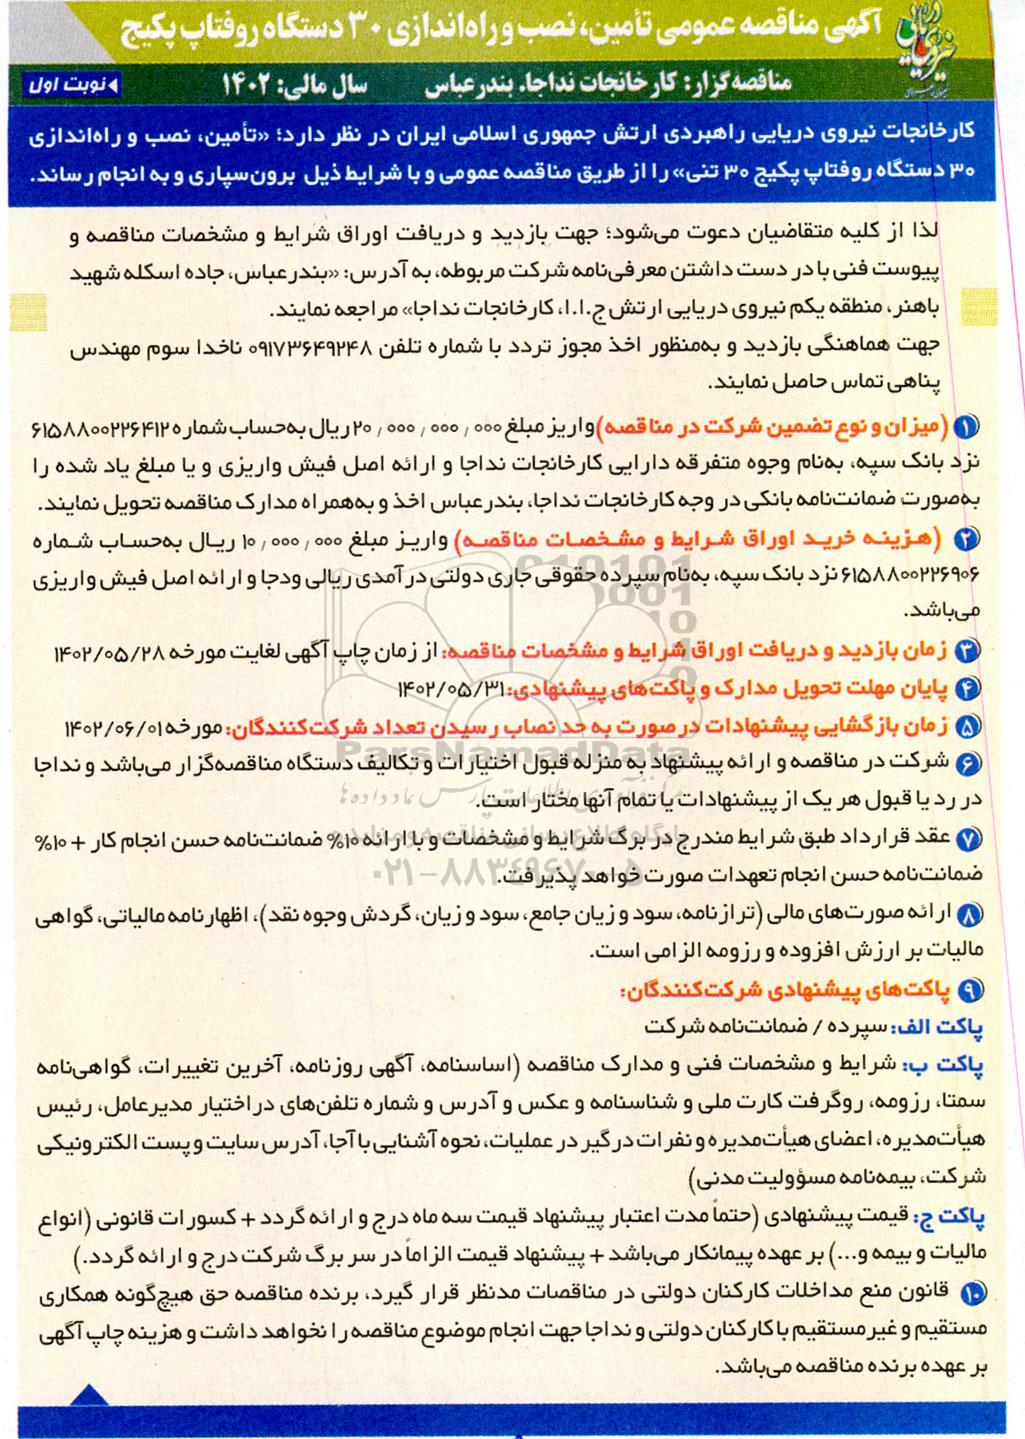 آگهی مناقصه عمومی تأمین، نصب و راه‌اندازی ۳۰ دستگاه روفتاپ پکیج
مناقصه‌گزار: کارخانجات نداجا، بندرعباس سال مالی: ۱۴۰۲ نوبت اول
کارخانجات نیروی دریایی راهبردی ارتش جمهوری اسلامی ایران در نظر دارد؛ «تأمین، نصب و راه‌اندازی
۳۰ دستگاه روفتاپ پکیج ۳۰ تنی» را از طریق مناقصه عمومی و با شرایط ذیل برون‌سپاری و به انجام رساند.
لذا از کلیه متقاضیان دعوت می‌شود؛ جهت بازدید و دریافت اوراق شرایط و مشخصات مناقصه و
پیوست فنی با در دست داشتن معرفی‌نامه شرکت مربوطه، به آدرس: «بندرعباس، جاده اسکله شهید
باهنر، منطقه یکم نیروی دریایی ارتش ج.ا.ا، کارخانجات نداجا» مراجعه نمایند.
جهت هماهنگی بازدید و به‌منظور اخذ مجوز تردد با شماره تلفن ۰۹۱۷۳۶۴۹۲۴۸ ناخدا سوم مهندس
پناهی تماس حاصل نمایند.
۱ (میزان و نوع تضمین شرکت در مناقصه) واریز مبلغ ۲۰,۰۰۰,۰۰۰,۰۰۰ ریال به‌حساب شماره ۶۱۵۸۸۰۰۲۲۶۴۱۲
نزد بانک سپه، به‌نام وجوه متفرقه دارایی کارخانجات نداجا و ارائه اصل فیش واریزی و یا مبلغ یاد شده را
به‌صورت ضمانت‌نامه بانکی در وجه کارخانجات نداجا، بندرعباس اخذ و به‌همراه مدارک مناقصه تحویل نمایند.
۲ (هزینه خرید اوراق شرایط و مشخصات مناقصه) واریز مبلغ ۱۰,۰۰۰,۰۰۰ ریال به‌حساب شماره
۶۱۵۸۸۰۰۲۲۶۹۰۶ نزد بانک سپه، به‌نام سپرده حقوقی جاری دولتی درآمدی ریالی ودجا و ارائه اصل فیش واریزی
می‌باشد.
۳ زمان بازدید و دریافت اوراق شرایط و مشخصات مناقصه: از زمان چاپ آگهی لغایت مورخه ۱۴۰۲/۰۵/۲۸
۴ پایان مهلت تحویل مدارک و پاکت‌های پیشنهادی: ۱۴۰۲/۰۵/۳۱
۵ زمان بازگشایی پیشنهادات در صورت به حد نصاب رسیدن تعداد شرکت‌کنندگان: مورخه ۱۴۰۲/۰۶/۰۱
ParsNamadData
۶ شرکت در مناقصه و ارائه پیشنهاد به منزله قبول اختیارات و تکالیف دستگاه مناقصه‌گزار می‌باشد و نداجا
در رد یا قبول هر یک از پیشنهادات یا تمام آنها مختار است.
۷ عقد قرارداد طبق شرایط مندرج در برگ شرایط و مشخصات و با ارائه ۱۰% ضمانت‌نامه حسن انجام کار + ۱۰%
ضمانت‌نامه حسن انجام تعهدات صورت خواهد پذیرفت.
۰۲۱-۸۸۳۴۹۶۷۰-۵
۸ ارائه صورت‌های مالی (ترازنامه، سود و زیان جامع، سود و زیان، گردش وجوه نقد)، اظهارنامه مالیاتی، گواهی
مالیات بر ارزش افزوده و رزومه الزامی است.
۹ پاکت‌های پیشنهادی شرکت‌کنندگان:
پاکت الف: سپرده / ضمانت‌نامه شرکت
پاکت ب: شرایط و مشخصات فنی و مدارک مناقصه (اساسنامه، آگهی روزنامه، آخرین تغییرات، گواهی‌نامه
سمتا، رزومه، روگرفت کارت ملی و شناسنامه و عکس و آدرس و شماره تلفن‌های در اختیار مدیرعامل، رئیس
هیأت‌مدیره، اعضای هیأت‌مدیره و نفرات درگیر در عملیات، نحوه آشنایی با آجا، آدرس سایت و پست الکترونیکی
شرکت، بیمه‌نامه مسؤولیت مدنی)
پاکت ج: قیمت پیشنهادی (حتماً مدت اعتبار پیشنهاد قیمت سه ماه درج و ارائه گردد + کسورات قانونی (انواع
مالیات و بیمه و...) بر عهده پیمانکار می‌باشد + پیشنهاد قیمت الزاماً در سر برگ شرکت درج و ارائه گردد.)
۱۰ قانون منع مداخلات کارکنان دولتی در مناقصات مدنظر قرار گیرد، برنده مناقصه حق هیچ‌گونه همکاری
مستقیم و غیرمستقیم با کارکنان دولتی و نداجا جهت انجام موضوع مناقصه را نخواهد داشت و هزینه چاپ آگهی
بر عهده برنده مناقصه می‌باشد.